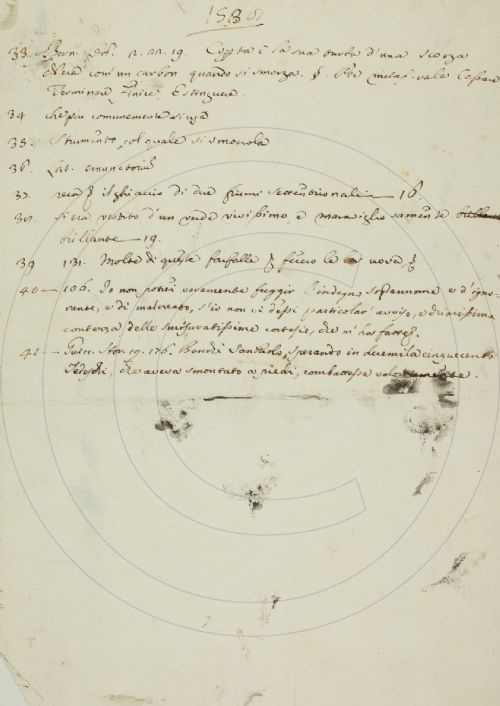 33. Bern. Orl. 2. 22. 19. Coperta è la sua turba d'una scorza
Nera com'un carbon quando si smorza. § Per metaf. vale Cessare
Terminare Finire, Estinguere.
34 che più comunemente si usa
35. Strumento, col quale si smoccola
36. Lat. emunctorium
37 il ghiaccio di due fiumi settentrionali — 16.
38. si era vestito d'un verde vivissimo, e maravigliosamente
brillante — 19.
39 131. Molte di queste farfalle fecero le uova,
40 — 106. Io non potrei veramente fuggir l'indegno soprannome e d'igno-
rante, e di malcreato, s'io non vi dessi particolar avviso, e
contezza delle smisuratissime cortesie, che
41 — Guicc. Stor. 19. 176. sperando in duemila cinquecento
Tedeschi, che aveva smontato a piedi, combattesse